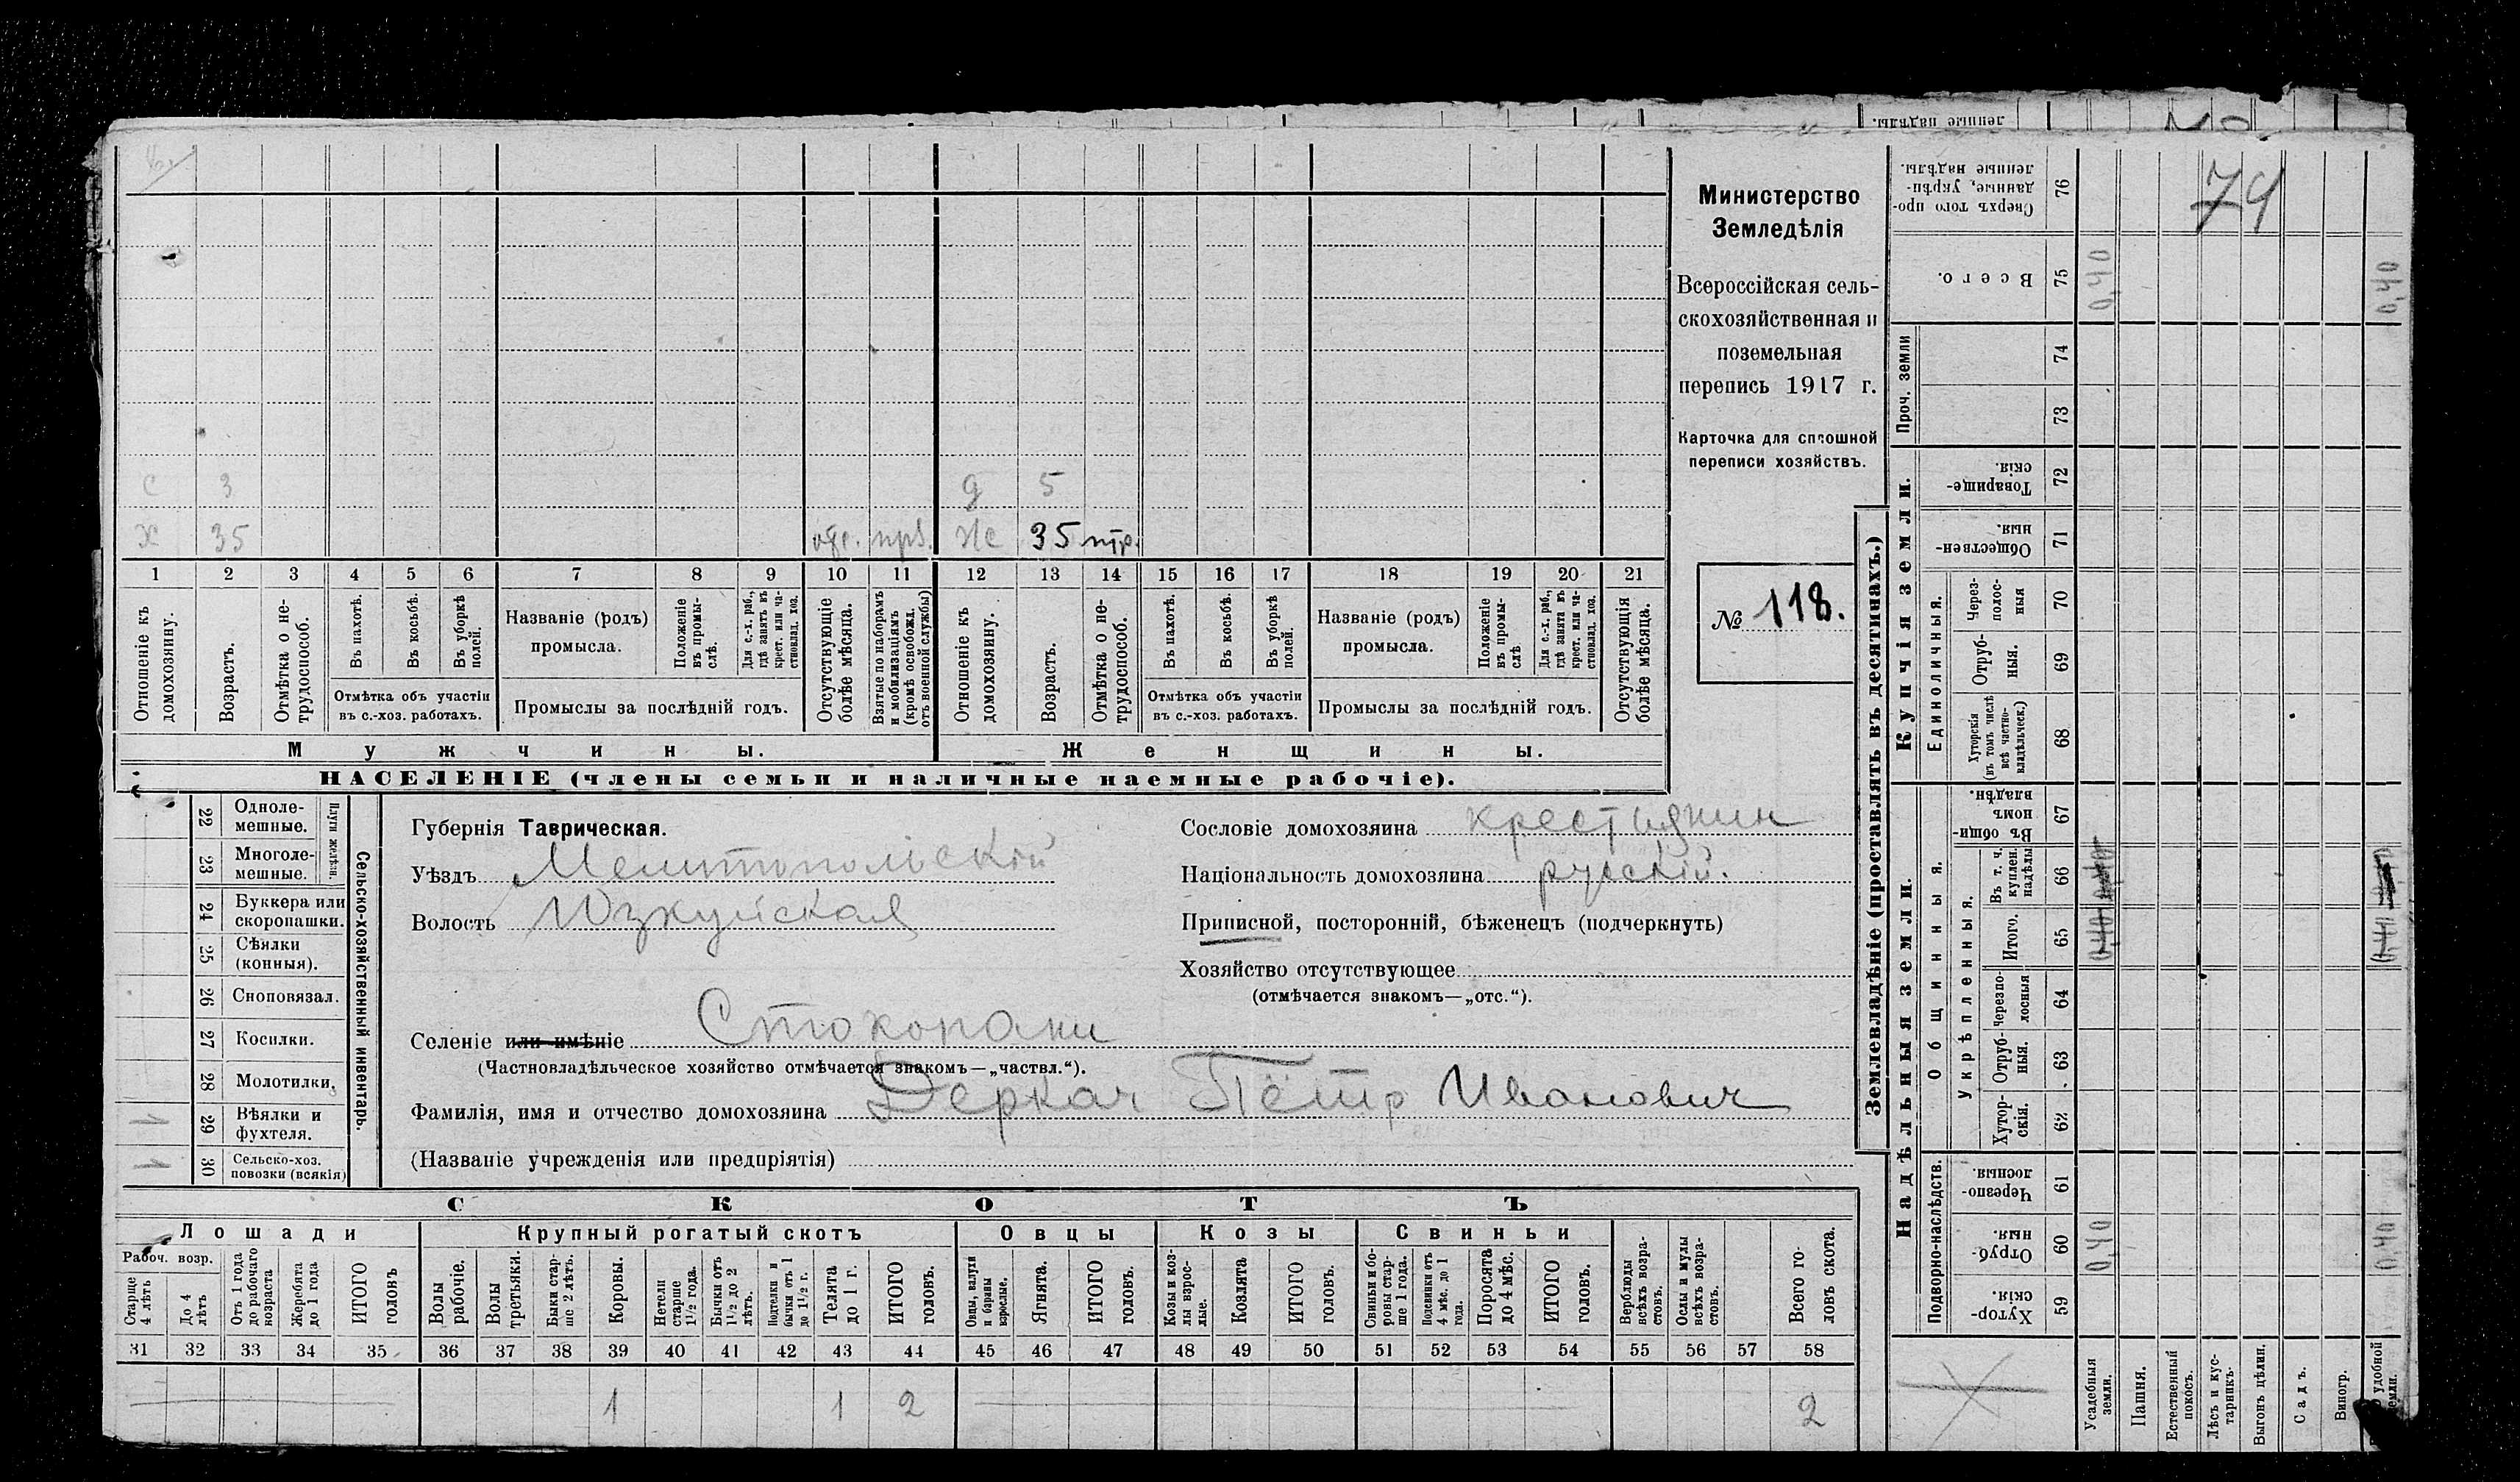 ленные надѣлы.
74
Министерство
Земледѣлія
Всероссійская сель-
скохозяйственная и
поземельная
перепись 1917 г.
Карточка для сплошной
переписи хозяйствъ.
№ 118.
с 3 д 5
х 35 прв. же 35 тр.
1 2 3 4 5 6 7 8 9 10 11 12 13 14 15 16 17 18 19 20 21
Отношеніе къ домохозяину.
Возрастъ.
Отмѣтка о не-трудоспособ.
Въ пахотѣ.
Въ косьбѣ.
Въ уборкѣ полей.
Отмѣтка объ участіи
въ с.-хоз. работахъ.
Названіе (родъ)
промысла.
Положеніе въ промы-слѣ.
Для с.-х. раб., гдѣ занятъ въ крест. или ча-стновлад. хоз.
Промыслы за послѣдній годъ.
Отсутствующіе болѣе мѣсяца.
Взятые по наборамъ и мобилизаціямъ (кромѣ освобожд. отъ военной службы)
Отношеніе къ домохозяину.
Возрастъ.
Отмѣтка о не-трудоспособ.
Въ пахотѣ.
Въ косьбѣ.
Въ уборкѣ полей.
Отмѣтка объ участіи
въ с.-хоз. работахъ.
Названіе (родъ)
промысла.
Положеніе въ промы-слѣ
Для с.-х. раб., гдѣ занята въ крест. или ча-стновлад. хоз.
Промыслы за послѣдній годъ.
Отсутствующія болѣе мѣсяца.
Мужчины. Женщины.
НАСЕЛЕНІЕ (члены семьи и наличные наемные рабочіе).
22 Одноле-мешные.
23 Многоле-мешные.
Плуги желѣзн.
24 Буккера или скоропашки.
25 Сѣялки (конныя).
26 Сноповязал.
27 Косилки.
28 Молотилки.
1 29 Вѣялки и фухтеля.
1 30 Сельско-хоз. повозки (всякія)
Сельско-хозяйственный инвентарь.
Губернія Таврическая.
Уѣздъ Мелитопольскій
Волость Юзкуйская
Сословіе домохозяина крестьянин
Національность домохозяина русскій.
Приписной, посторонній, бѣженецъ (подчеркнуть)
Хозяйство отсутствующее
(отмѣчается знакомъ—„отс.“).
Селеніе или имѣніе Стокопани
(Частновладѣльческое хозяйство отмѣчается знакомъ—„частвл.“).
Фамилія, имя и отчество домохозяина Деркач Пётр Иванович
(Названіе учрежденія или предпріятія)
СКОТЪ
Лошади Крупный рогатый скотъ Овцы Козы Свиньи
Рабоч. возр.
Старше 4 лѣтъ
До 4 лѣтъ
Отъ 1 года до рабочаго возраста
Жеребята до 1 года
ИТОГО головъ
Волы рабочіе.
Волы третьяки.
Быки стар-ше 2 лѣтъ.
Коровы.
Нетели старше 1 1/2 года.
Бычки отъ 1 1/2 до 2 лѣтъ.
Подтелки и бычки отъ 1 до 1 1/2 г.
Телята до 1 г.
ИТОГО головъ.
Овцы, валухи и бараны взрослые.
Ягнята.
ИТОГО головъ.
Козы и коз-лы взрос-лые.
Козлята
ИТОГО головъ.
Свиньи и бо-ровы стар-ше 1 года.
Подсвинки отъ 4 мѣс. до 1 года.
Поросята до 4 мѣс.
ИТОГО головъ.
Верблюды всѣхъ возра-стовъ.
Ослы и мулы всѣхъ возра-стовъ.
Всего го-ловъ скота.
31 32 33 34 35 36 37 38 39 40 41 42 43 44 45 46 47 48 49 50 51 52 53 54 55 56 57 58
1 1 2 2
Землевладѣніе (проставлять въ десятинахъ.)
Сверхъ того про-данные, укрѣп-ленные надѣлы. 76
Всего. 75 0,40 0,40
Проч. земли 74
73
Купчія земли.
Товарище-скія. 72
Обществен-ныя. 71
Единоличныя.
Через-полос-ныя 70
Отруб-ныя. 69
Хуторскія (въ томъ числѣ всѣ частно-владѣльческ.) 68
Надѣльныя земли.
Общинныя.
Въ общи-номъ владѣн. 67
Укрѣпленныя.
Въ т. ч. куплен. надѣлы 66
Итого. 65
Черезпо-лосныя 64
Отруб-ныя. 63
Хутор-скія. 62
Подворно-наслѣдств.
Черезпо-лосныя. 61
Отруб-ныя. 60 0,40 0,40
Хутор-скія. 59
Усадебныя земли.
Пашня.
Естественный покосъ.
Лѣсъ и кус-тарникъ.
Выгонъ цѣлин.
Садъ.
Виногр.
удобной земли.